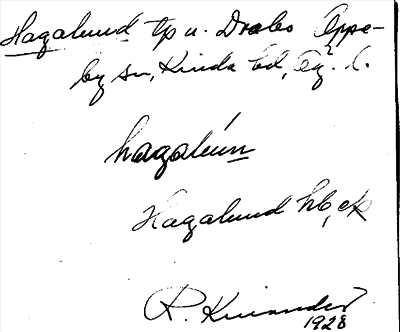 Hagalund tp u. Drabo Oppe-
by sn, Kinda hd, Ög. l.
hagalún
Hagalund hb, ek
R. Kinander
1928